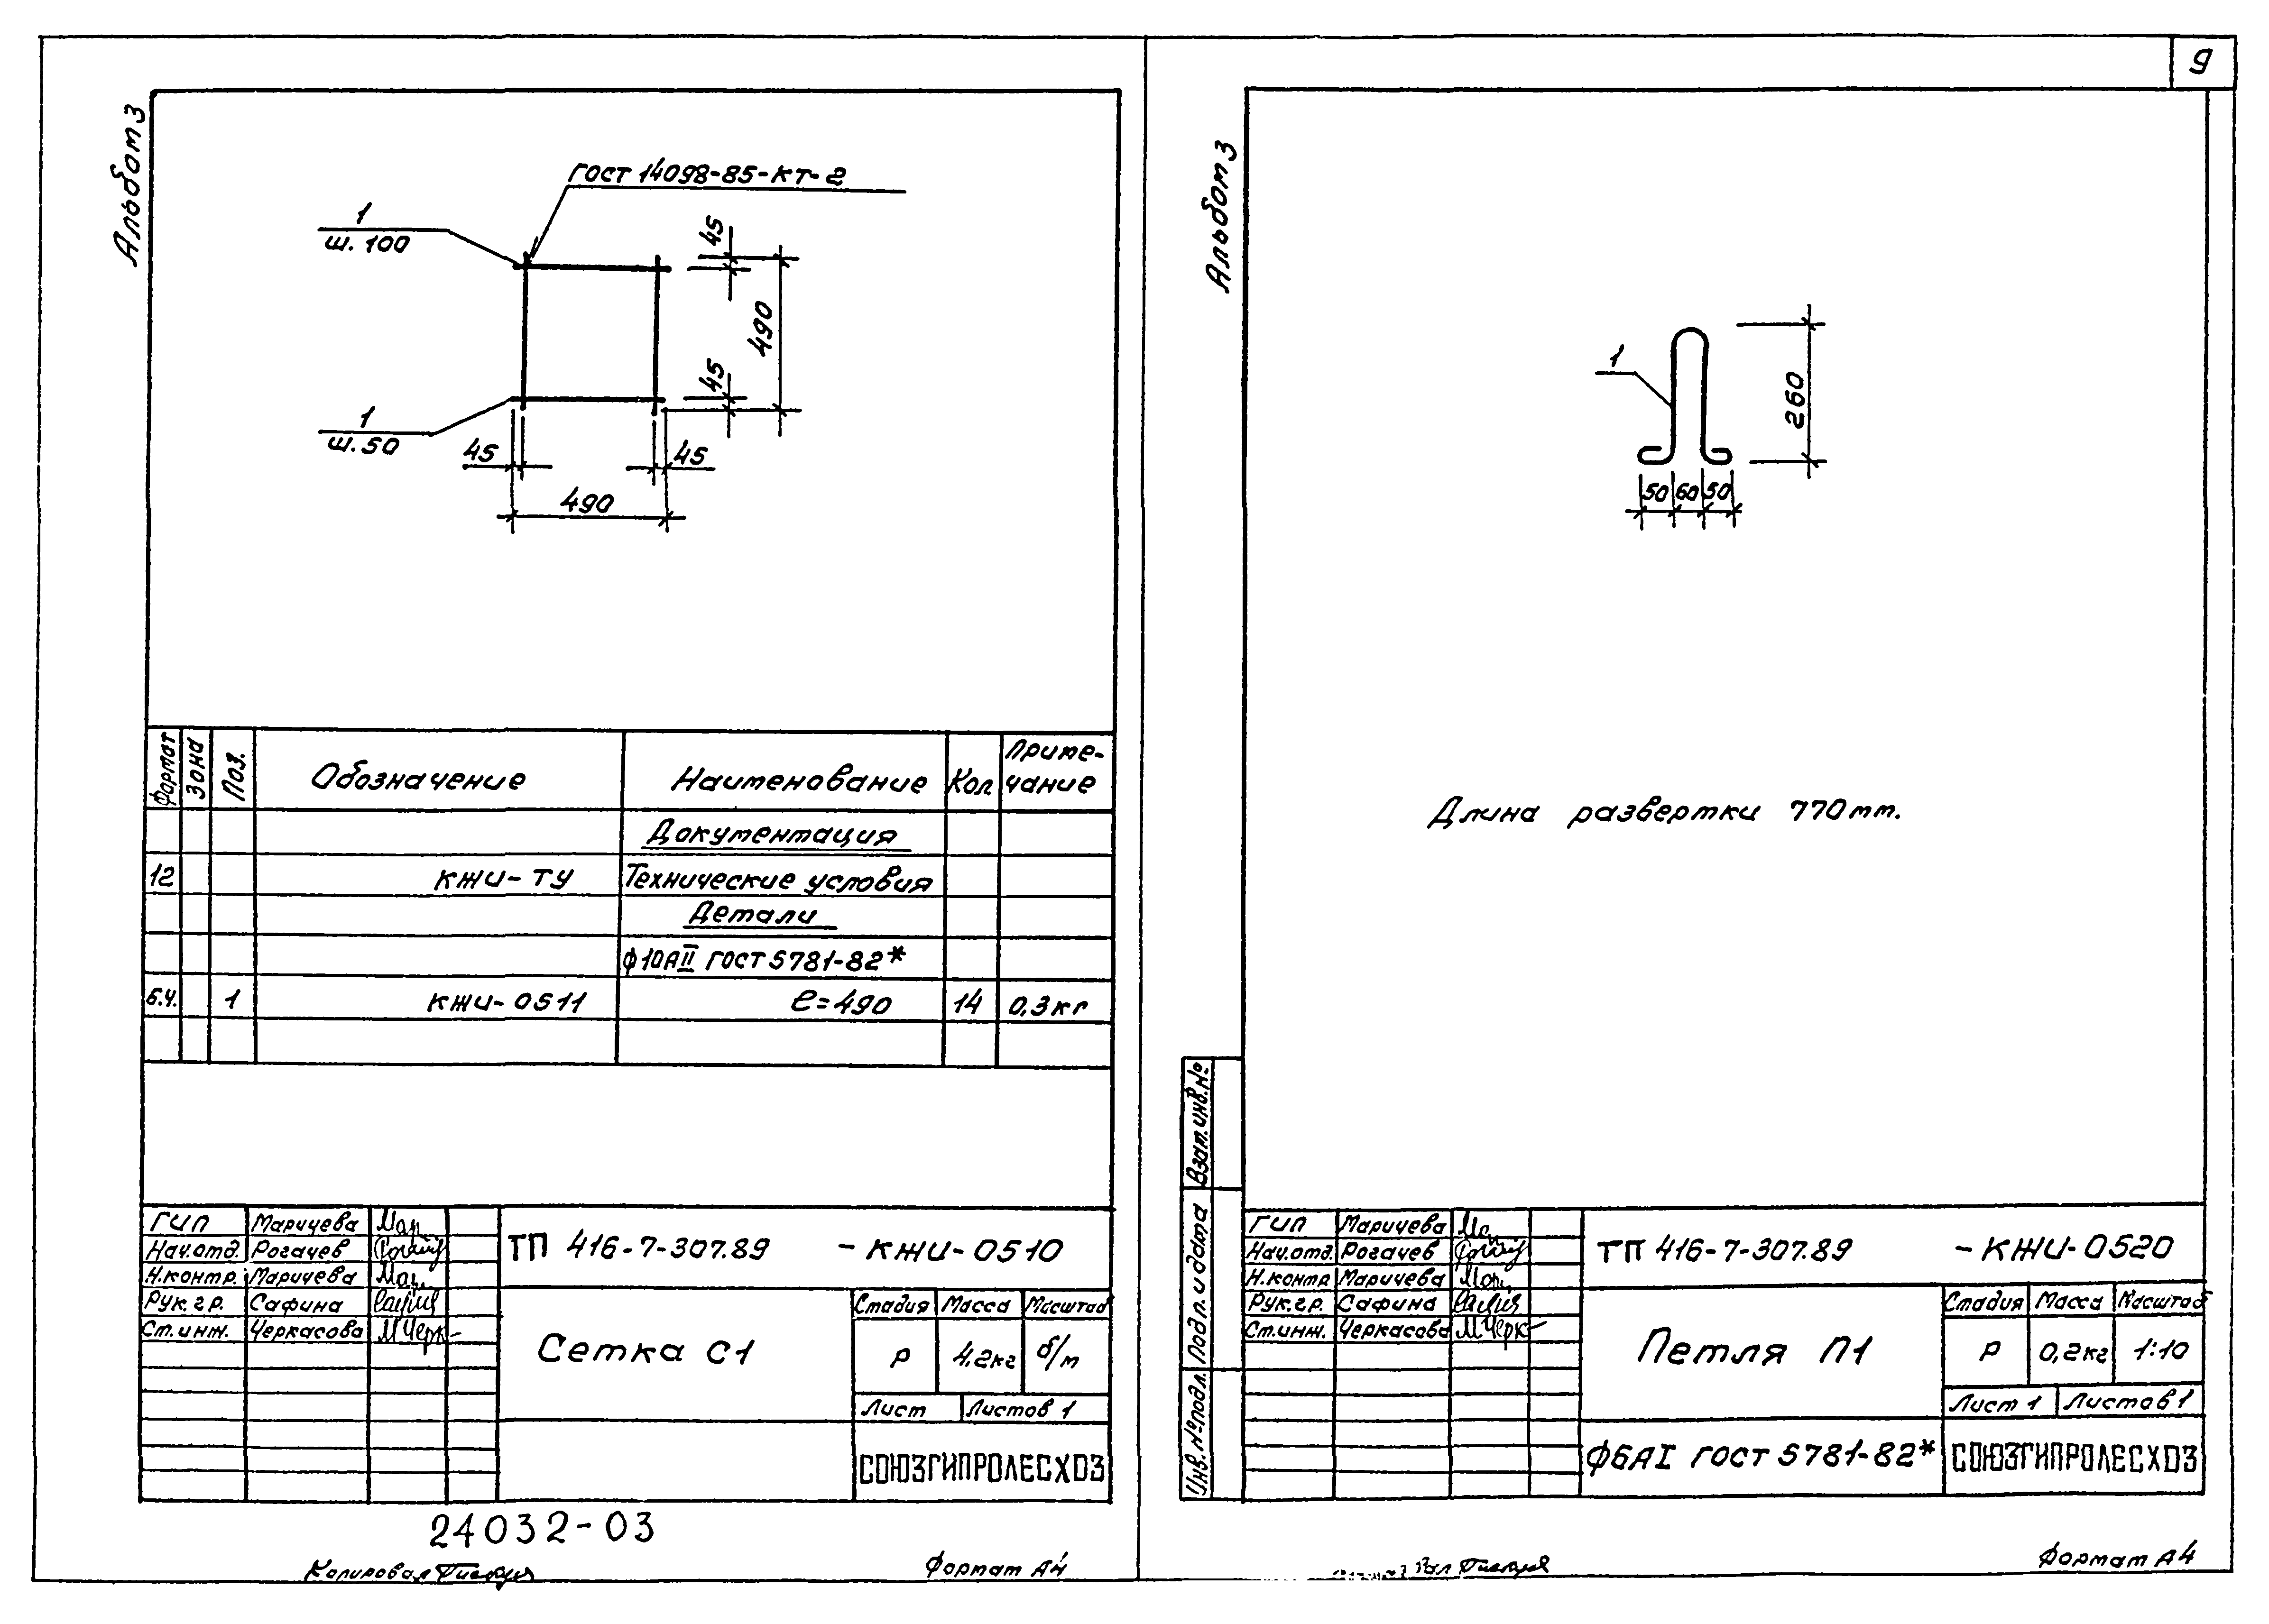 9
Альбом 3
ГОСТ 14098-85-КТ-2
1
ш. 100
1
ш. 50
45
490
45
45
45
490
Формат Зона Поз. Обозначение Наименование Кол Приме-
чание
Документация
12 КЖИ-ТУ Технические условия
Детали
ф10АII ГОСТ 5781-82*
б.ч. 1 КЖИ-0511 ℓ=490 14 0,3кг
ГИП Маричева
Нач.отд. Рогачев
Н.контр. Маричева
Рук.гр. Сафина
Ст.инж. Черкасова
ТП 416-7-307.89 -КЖИ-0510
Сетка С1
Стадия Масса Масштаб
Р 4,2кг б/м
Лист Листов 1
СОЮЗГИПРОЛЕСХОЗ
24032-03
Копировал
Формат А4
Альбом 3
1
260
50 60 50
Длина развертки 770мм.
Взам.инв.№
Подп. и дата
Инв.№ подл.
ГИП Маричева
Нач.отд. Рогачев
Н.контр Маричева
Рук.гр. Сафина
Ст.инж. Черкасова
ТП 416-7-307.89 -КЖИ-0520
Петля П1
Стадия Масса Масштаб
Р 0,2кг 1:10
Лист 1 Листов 1
Ф6АI ГОСТ 5781-82*
СОЮЗГИПРОЛЕСХОЗ
Формат А4